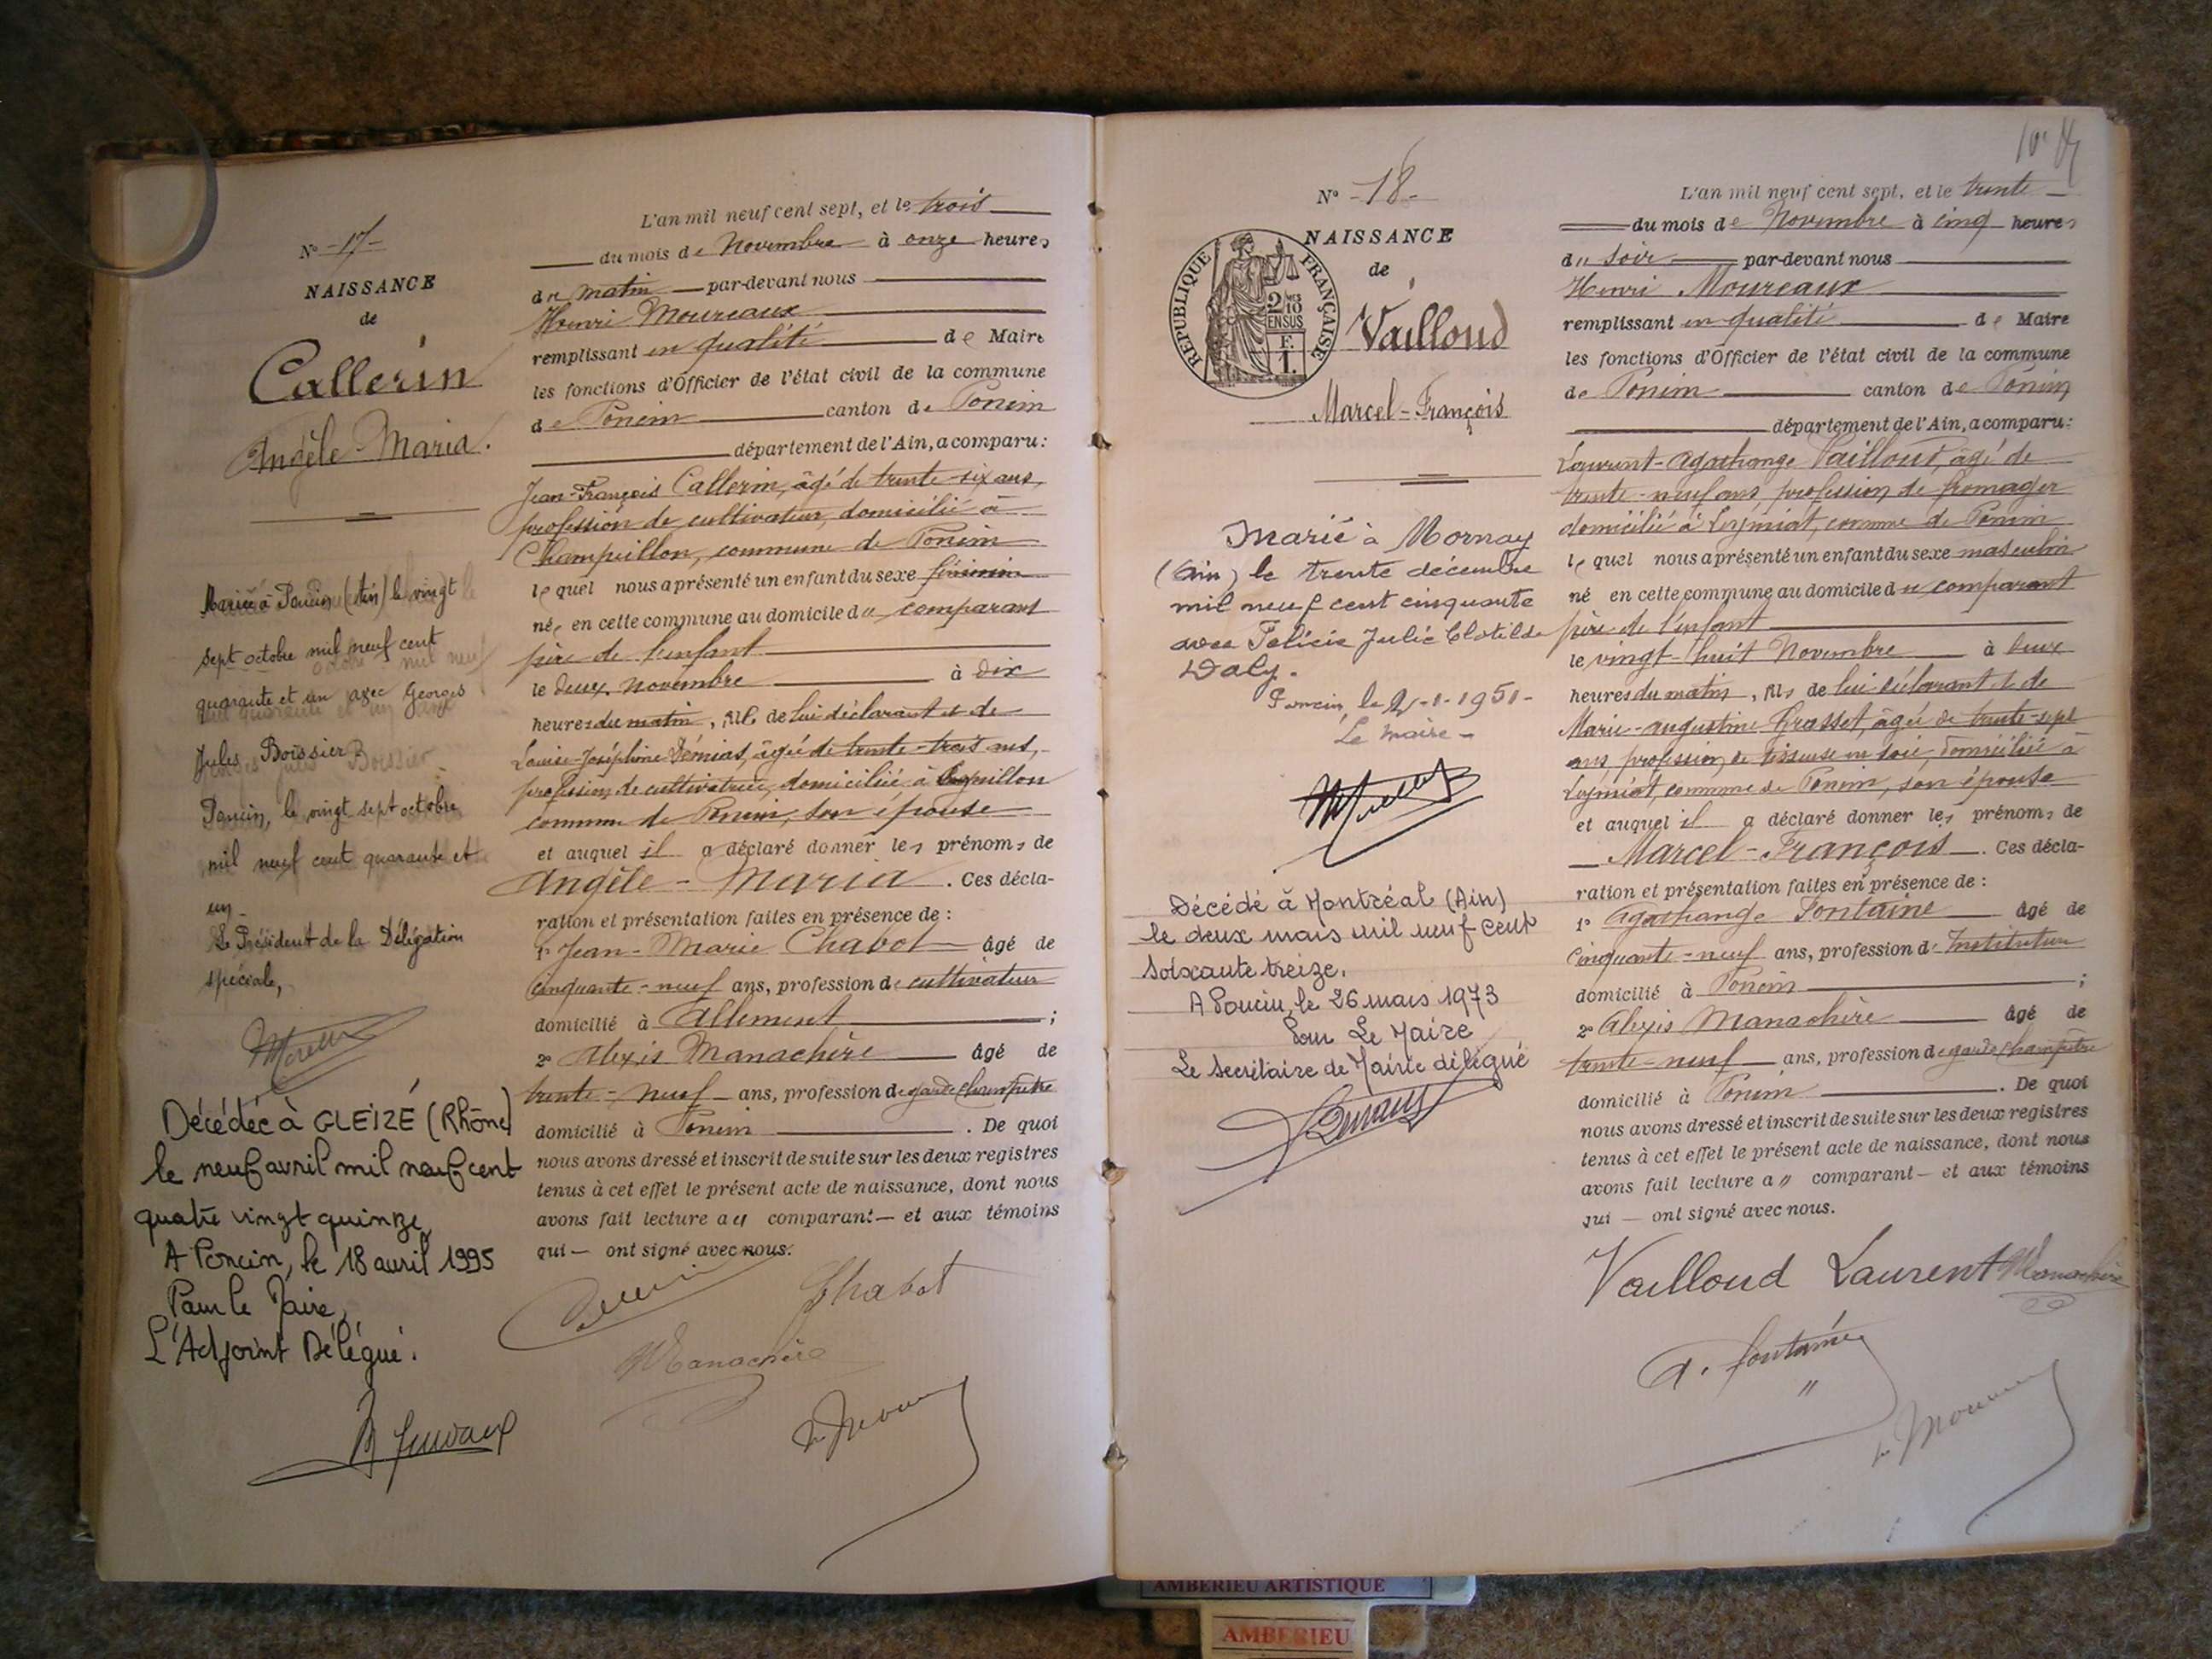 N° -17-
NAISSANCE
de
Callerin
Angèle-Maria.
Mariée à Poncin (Ain) le vingt
sept octobre mil neuf cent
quarante et un avec Georges
Jules Boissier
Poncin, le vingt sept octobre
mil neuf cent quarante et
un.
Le Président de la Délégation
spéciale,
Décédée à GLEIZÉ (Rhône)
le neuf avril mil neuf cent
quatre vingt quinze
A Poncin, le 18 avril 1995
Pour le Maire,
L'Adjoint Délégué.
L'an mil neuf cent sept, et le trois
du mois de Novembre à onze heures
du matin par-devant nous
Henri Moureaux
remplissant en qualité de Maire
les fonctions d'Officier de l'état civil de la commune
de Poncin canton de Poncin
département de l'Ain, a comparu:
Jean-François Callerin, âgé de trente-six ans,
profession de cultivateur, domicilié à
Champeillon, commune de Poncin
lequel nous a présenté un enfant du sexe féminin
née en cette commune au domicile du comparant
père de l'enfant
le deux novembre à dix
heures du matin, fille de lui déclarant et de
Louise-Joséphine, âgée de trente-trois ans,
profession de cultivatrice, domiciliée à
commune de Poncin, son épouse
et auquel il a déclaré donner les prénoms de
Angèle-Maria. Ces décla-
ration et présentation faites en présence de :
1° Jean-Marie Chabot âgé de
cinquante-neuf ans, profession de cultivateur
domicilié à Allement ;
2° Alexis Manachère âgé de
trente-neuf ans, profession de garde champêtre
domicilié à Poncin. De quoi
nous avons dressé et inscrit de suite sur les deux registres
tenus à cet effet le présent acte de naissance, dont nous
avons fait lecture au comparant et aux témoins
qui ont signé avec nous.
Chabot
Manachère
N° -18-
NAISSANCE
de
Vailloud
Marcel-François
RÉPUBLIQUE FRANÇAISE
2/10 EN SUS
F. 1.
Marié à Mornay
(Ain) le trente décembre
mil neuf cent cinquante
avec Félicie Julie Clotilde
Daly.
Poncin, le 2-1-1951-
Le Maire-
Décédé à Montréal (Ain)
le deux mars mil neuf cent
soixante treize.
A Poncin, le 26 mars 1973
Pour Le Maire
Le secrétaire de Mairie délégué
L'an mil neuf cent sept, et le trente
du mois de Novembre à cinq heures
du soir par-devant nous
Henri Moureaux
remplissant en qualité de Maire
les fonctions d'Officier de l'état civil de la commune
de Poncin canton de Poncin
département de l'Ain, a comparu:
Laurent-Agathange Vailloud, âgé de
trente-neuf ans, profession de fromager
domicilié à Leymiat, commune de Poncin
lequel nous a présenté un enfant du sexe masculin
né en cette commune au domicile du comparant
père de l'enfant
le vingt-huit Novembre à deux
heures du matin, fils de lui déclarant et de
Marie-Augustine Grasset, âgée de trente-sept
ans profession de tisseuse en soie, domiciliée à
Leymiat, commune de Poncin, son épouse
et auquel il a déclaré donner les prénoms de
Marcel-François. Ces décla-
ration et présentation faites en présence de :
1° Agathange Fontaine âgé de
cinquante-neuf ans, profession d'Instituteur
domicilié à Poncin ;
2° Alexis Manachère âgé de
trente-neuf ans, profession de garde champêtre
domicilié à Poncin. De quoi
nous avons dressé et inscrit de suite sur les deux registres
tenus à cet effet le présent acte de naissance, dont nous
avons fait lecture au comparant et aux témoins
qui ont signé avec nous.
Vailloud Laurent Manachère
A. Fontaine
AMBERIEU ARTISTIQUE
AMBERIEU